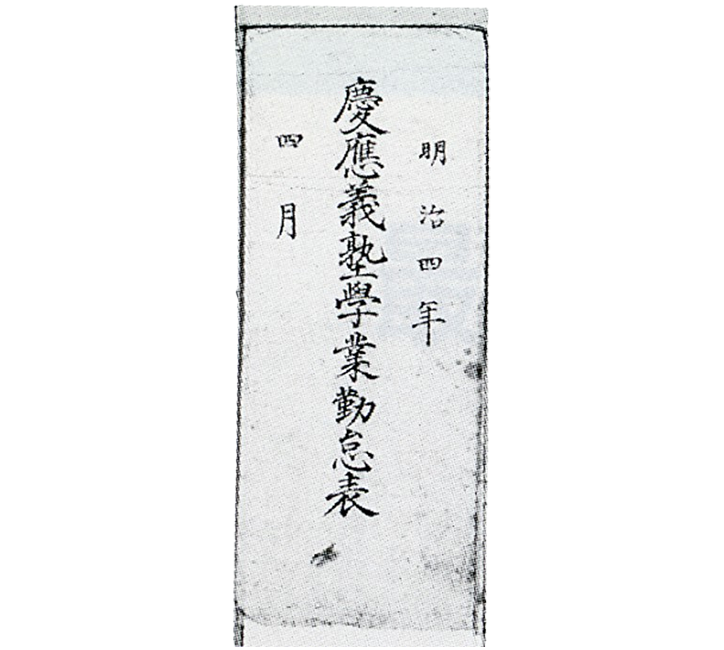 明治四年
慶應義塾學業勤怠表
四月